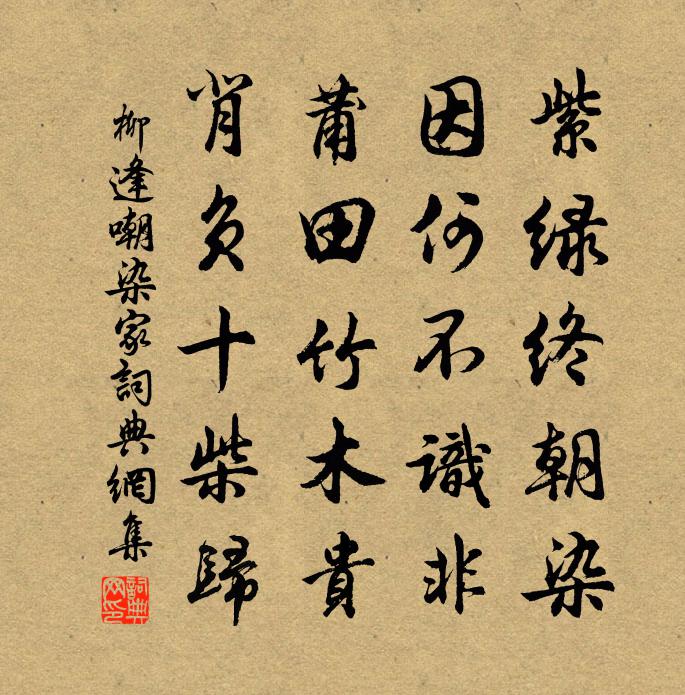 紫绿终朝染
因何不識非
莆田竹木貴
背負十柴歸
柳逢嘲染家詞典網集
詞典網印